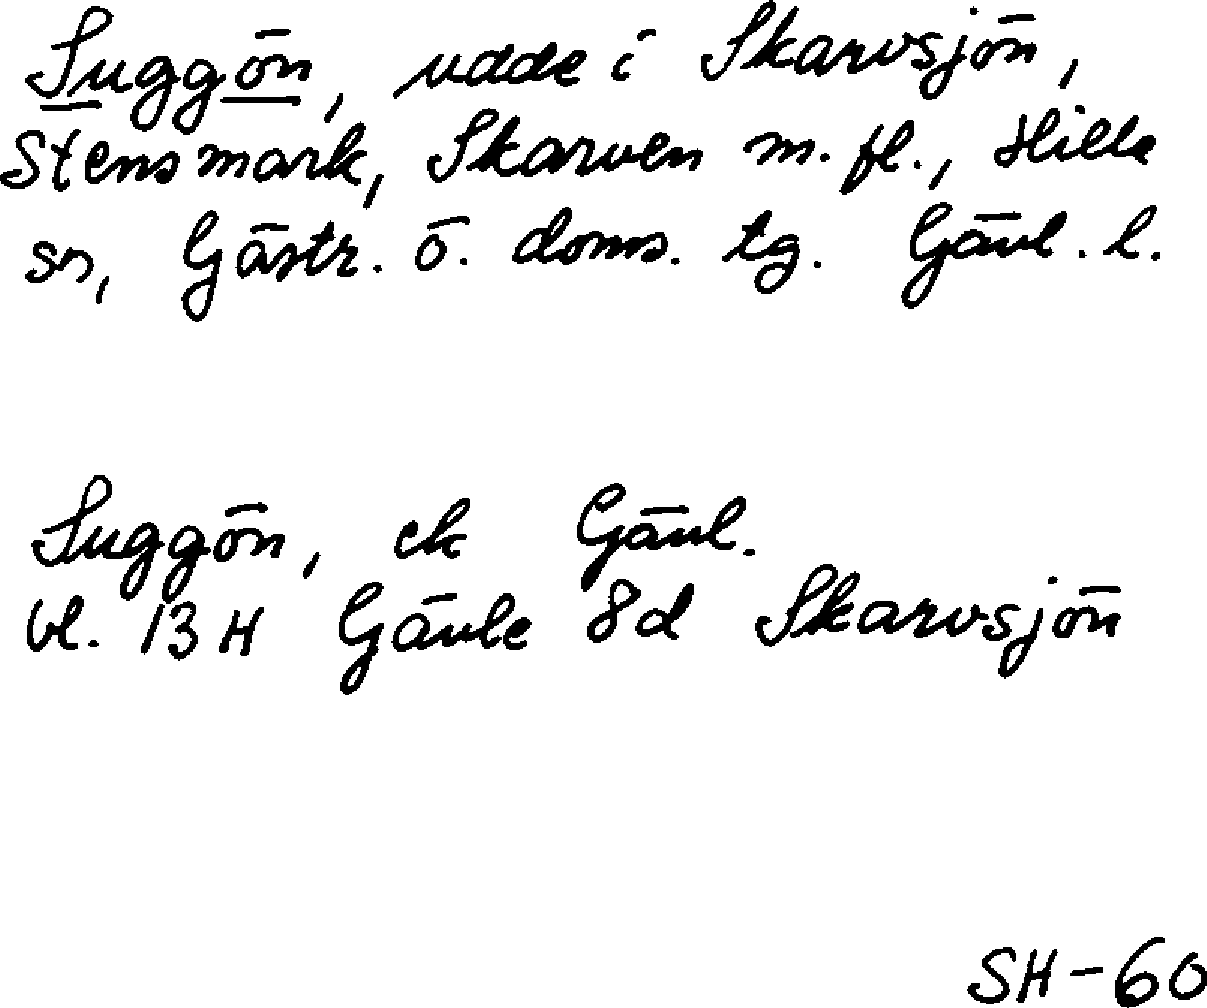 Suggön, udde i Skarvsjön,
Stensmark, Skarven m.fl., Hille
sn, Gästr. ö. doms. tg. Gävl. l.
Suggön, ek Gävl.
bl. 13H Gävle 8d Skarvsjön
SH-60